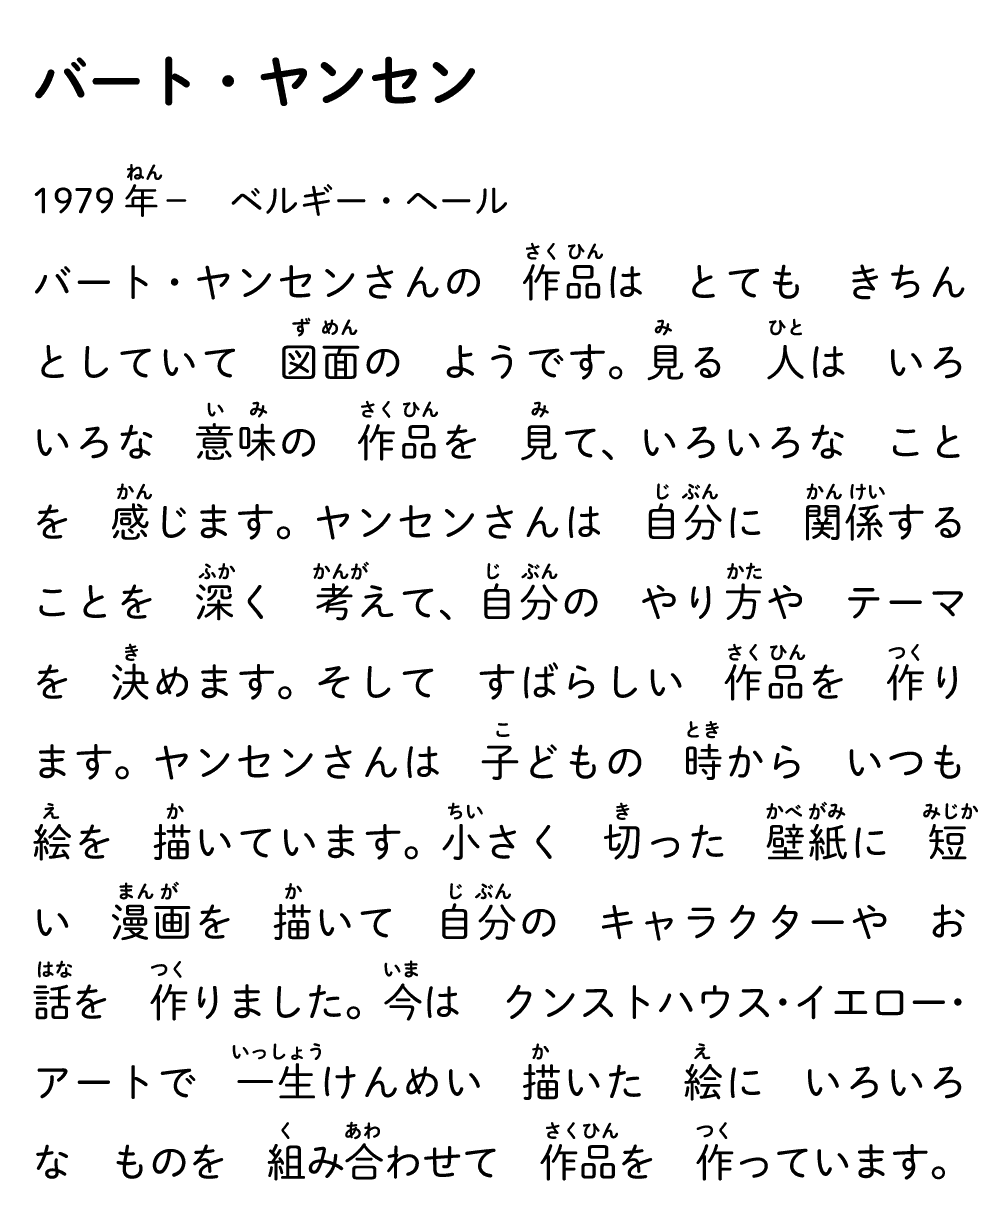 バート・ヤンセン
ねん
1979年－　ベルギー・ヘール
さくひん
バート・ヤンセンさんの　作品は　とても　きちん
ずめん　み　ひと
としていて　図面の　ようです。見る　人は　いろ
いみ　さくひん　み
いろな　意味の　作品を　見て、いろいろな　こと
かん　じぶん　かんけい
を　感じます。ヤンセンさんは　自分に　関係する
ふか　かんが　じぶん　かた
ことを　深く　考えて、自分の　やり方や　テーマ
き　さくひん　つく
を　決めます。そして　すばらしい　作品を　作り
こ　とき
ます。ヤンセンさんは　子どもの　時から　いつも
え　か　ちい　き　かべがみ　みじか
絵を　描いています。小さく　切った　壁紙に　短
まんが　か　じぶん
い　漫画を　描いて　自分の　キャラクターや　お
はな　つく　いま
話を　作りました。今は　クンストハウス・イエロー・
いっしょう　か　え
アートで　一生けんめい　描いた　絵に　いろいろ
く　あわ　さくひん　つく
な　ものを　組み合わせて　作品を　作っています。